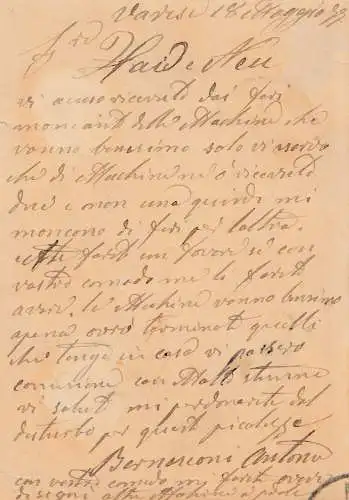 Varese 18 Maggio 89
Haid e Neu
vi acuso ricevuto dai feri
moncanti delle Machine che
vanno benissimo solo vi
che di Machine ne ò ricevuto
due e non una quindi mi
moncono di feri per laltra.
farete un favore se con
vostro comodo me li farete
avere. le Machine vanno benisimo
apena avrò terminat quelli
che tengo in casa vi
comisione con
vi saluti mi perdonerete del
disturbo per queste
Bernasconi Antonio
con vostro comodo mi farete avere i
disegni